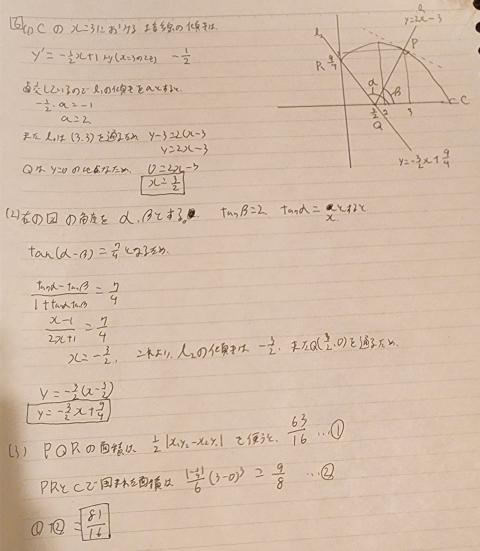 [6](1) Cの x=3における接線の傾きは
y'=-1/2x+1より(x=3のとき) -1/2
直交しているので l₁の傾きをaとすると
-1/2・a=-1
a=2
また l₁は (3,3)を通るため y-3=2(x-3)
y=2x-3
Qは y=0の地点なため 0=2x-3
x=3/2
l₂
l₁
y=2x-3
P
R 9/4
α
β
C
3/2
2
3
Q
y=-3/2x+9/4
(2) 右の図の角度を α,βとする。 tanβ=2 tanα=xとすると
tan(α-β)=7/4となるため
tanα-tanβ/1+tanαtanβ=7/4
x-1/2x+1=7/4
x=-3/2, これより, l₂の傾きは -3/2, またQ(3/2,0)を通るため
y=-3/2(x-3/2)
y=-3/2x+9/4
(3) PQRの面積は 1/2|x₁y₂-x₂y₁| を使うと, 63/16 …①
PRとCで囲まれた面積は |-1/4|/6(3-0)³=9/8 …②
①+②=81/16